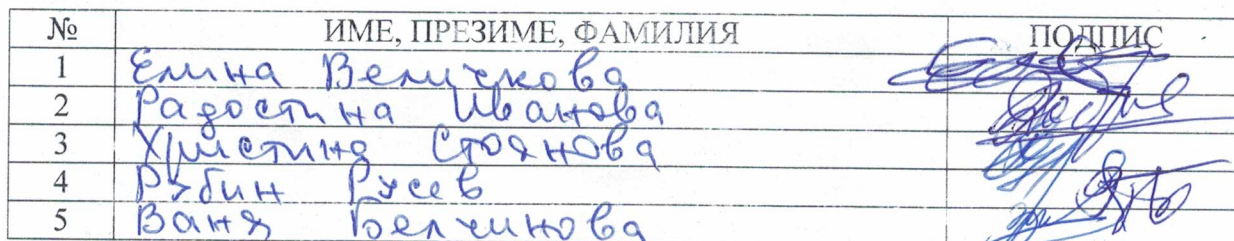 № ИМЕ, ПРЕЗИМЕ, ФАМИЛИЯ ПОДПИС
1 Елина Величкова
2 Радостина Иванова
3 Христина Стоянова
4 Рубин Русев
5 Ваня Белчинова